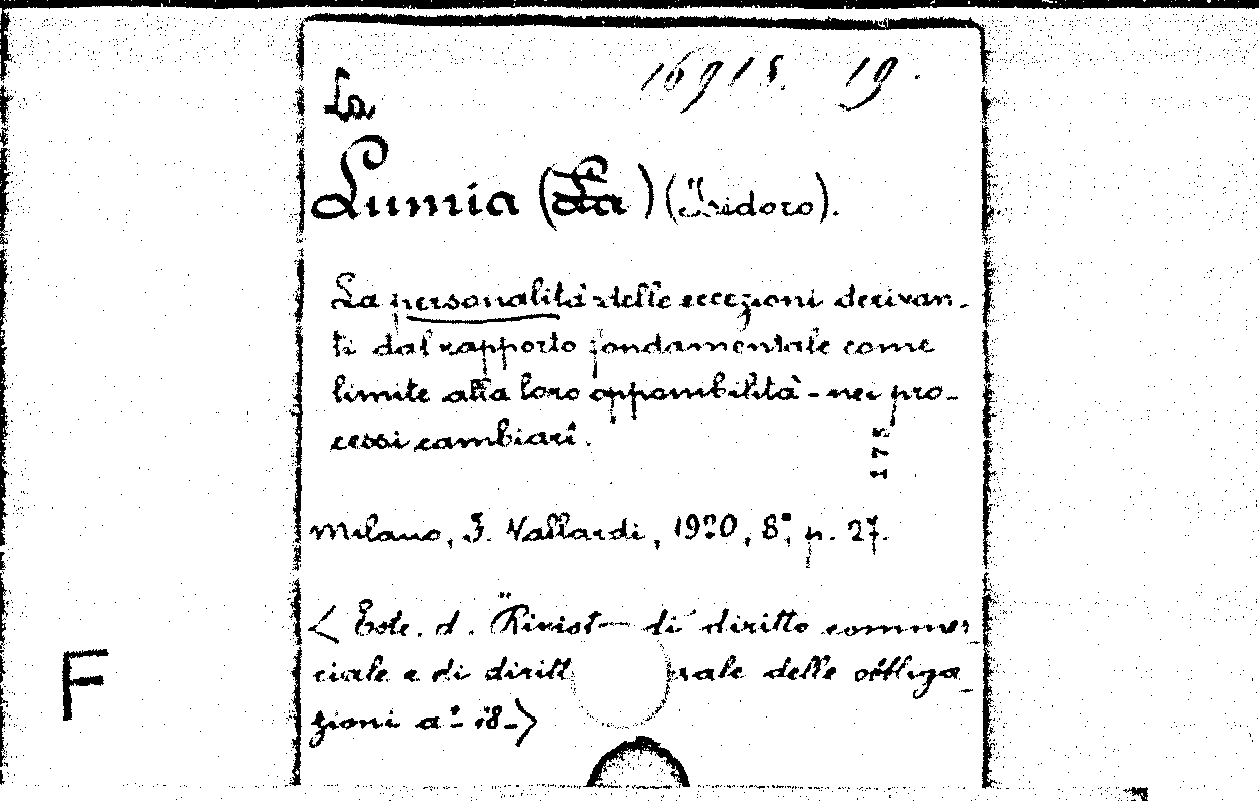 16915. 19.
La
Lumia (La) (Isidoro).
La personalità delle eccezioni derivan-
ti dal rapporto fondamentale come
limite alla loro opponibilità - nei pro-
cessi cambiari.
175
Milano, F. Vallardi, 1920, 8°, p. 27.
< Estr. d. "Rivist di diritto commer-
ciale e di diritt rale delle obbliga-
zioni a° 18->
F